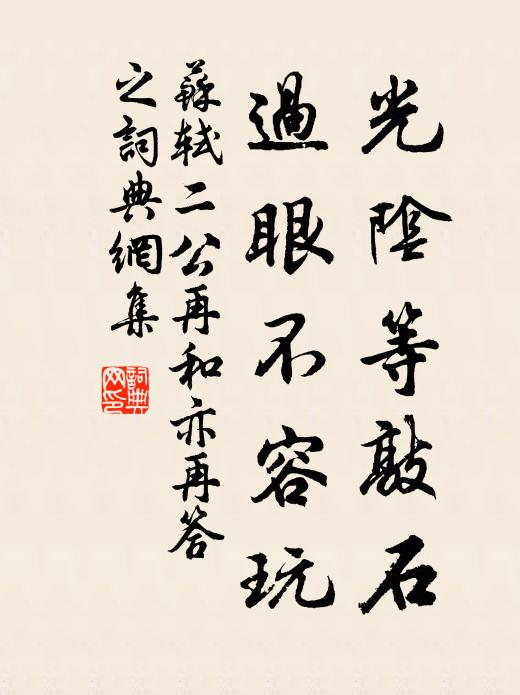 光陰等敲石
過眼不容玩
蘇軾二公再和亦再答
之詞典網集
詞典網印